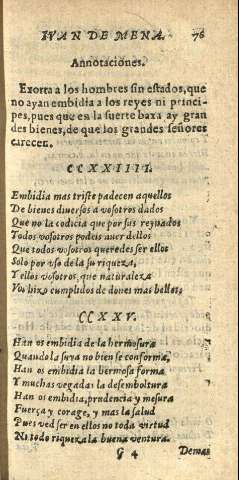 IVAN DE MENA. 76
Annotaciones.
Exorta a los hombres sin estados, que
no ayan embidia a los reyes ni princi-
pes, pues que en la suerte baxa ay gran
des bienes, de que los grandes señores
carecen.
CCXXIIII.
Embidia mas triste padecen aquellos
De bienes diuersos a vosotros dados
Que no la codicia que por sus reynados
Todos vosotros podeis auer dellos
Que todos vosotros queredes ser ellos
Solo por vso de la su riqueza,
Y ellos vosotros, que naturaleza
Vos hizo cumplidos de dones mas bellos,
CCXXV.
Han os embidia de la hermosura
Quando la suya no bien se conforma,
Han os embidia la hermosa forma
Y muchas vegadas la desemboltura
Han os embidia, prudencia y mesura
Fuerça y corage, y mas la salud
Pues ved ser en ellos no toda virtud
Ni todo riqueza la buena ventura.
G 4 Demas